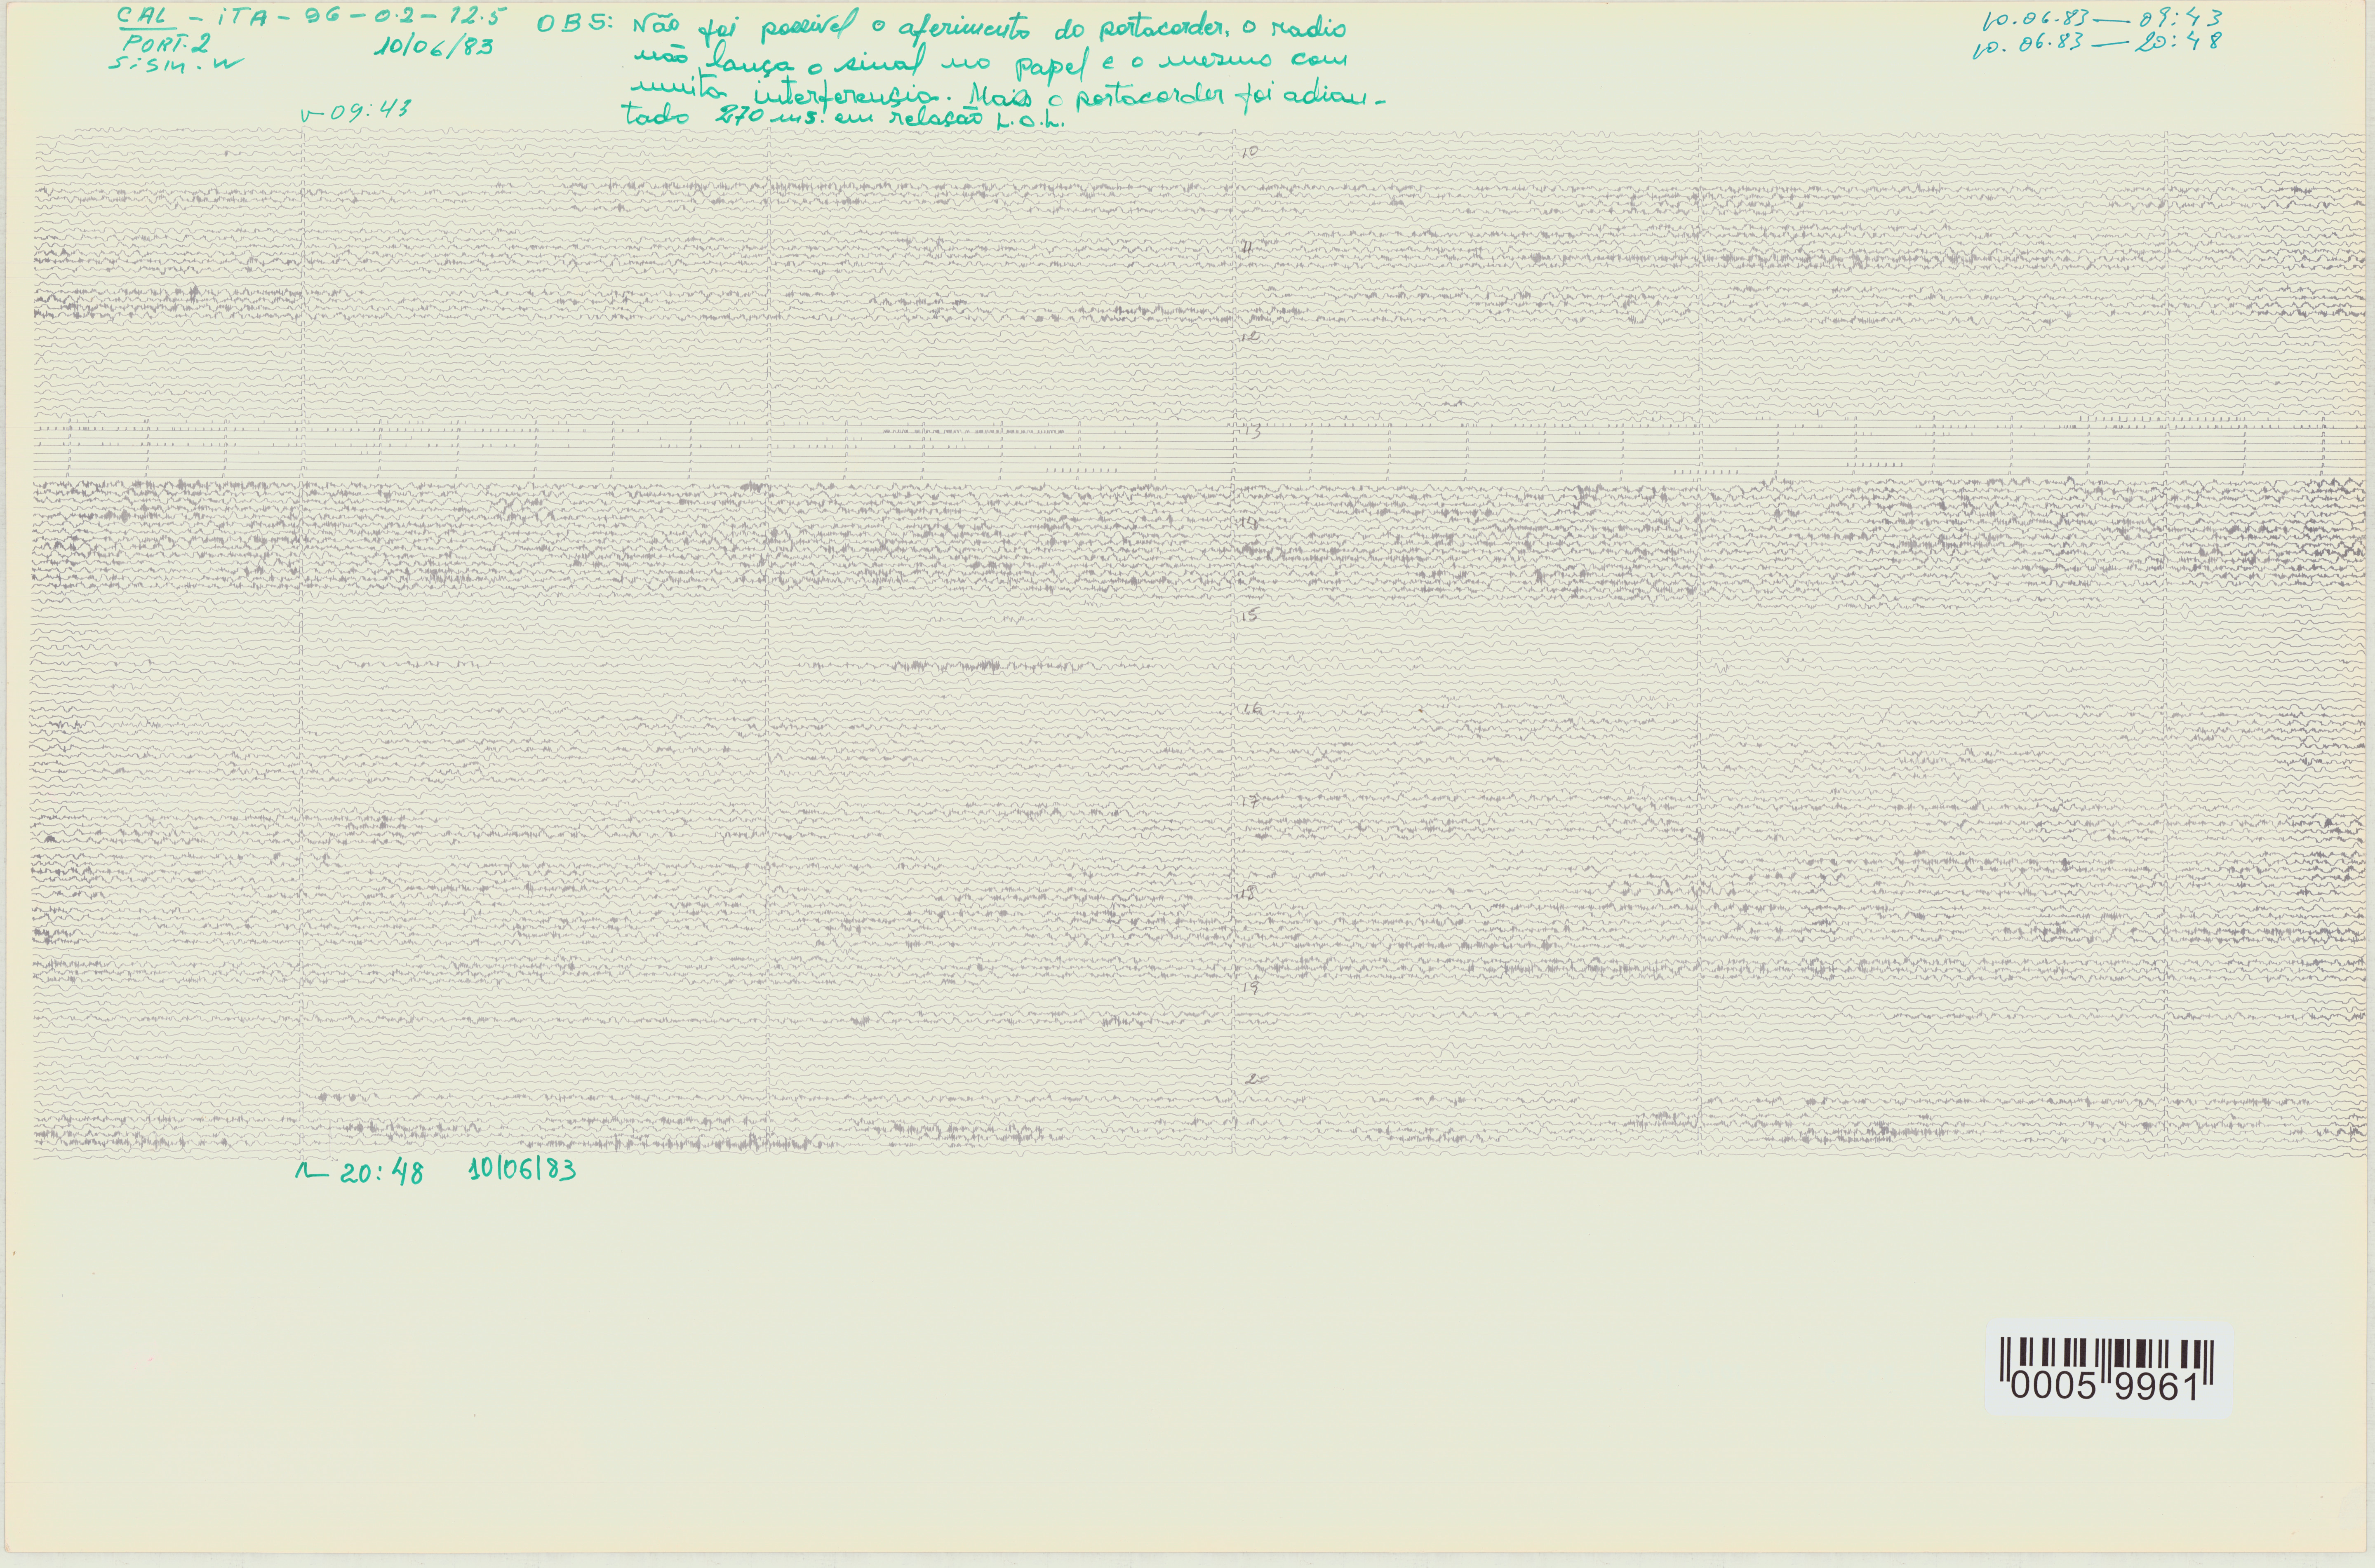 CAL - iTA - 96 - 0.2 - 12.5
PORT. 2 10/06/83
SiSM. W
OBS: Não foi possivel o aferimento do portacorder, o radio
não lança o sinal no papel e o mesmo com
muita interferensia. Mais o portacorder foi adian-
tado 270 ms. em relasão L.O.L.
10.06.83 — 09:43
10.06.83 — 20:48
09:43
10
11
12
13
14
15
16
17
18
19
20
20:48 10/06/83
0005 9961